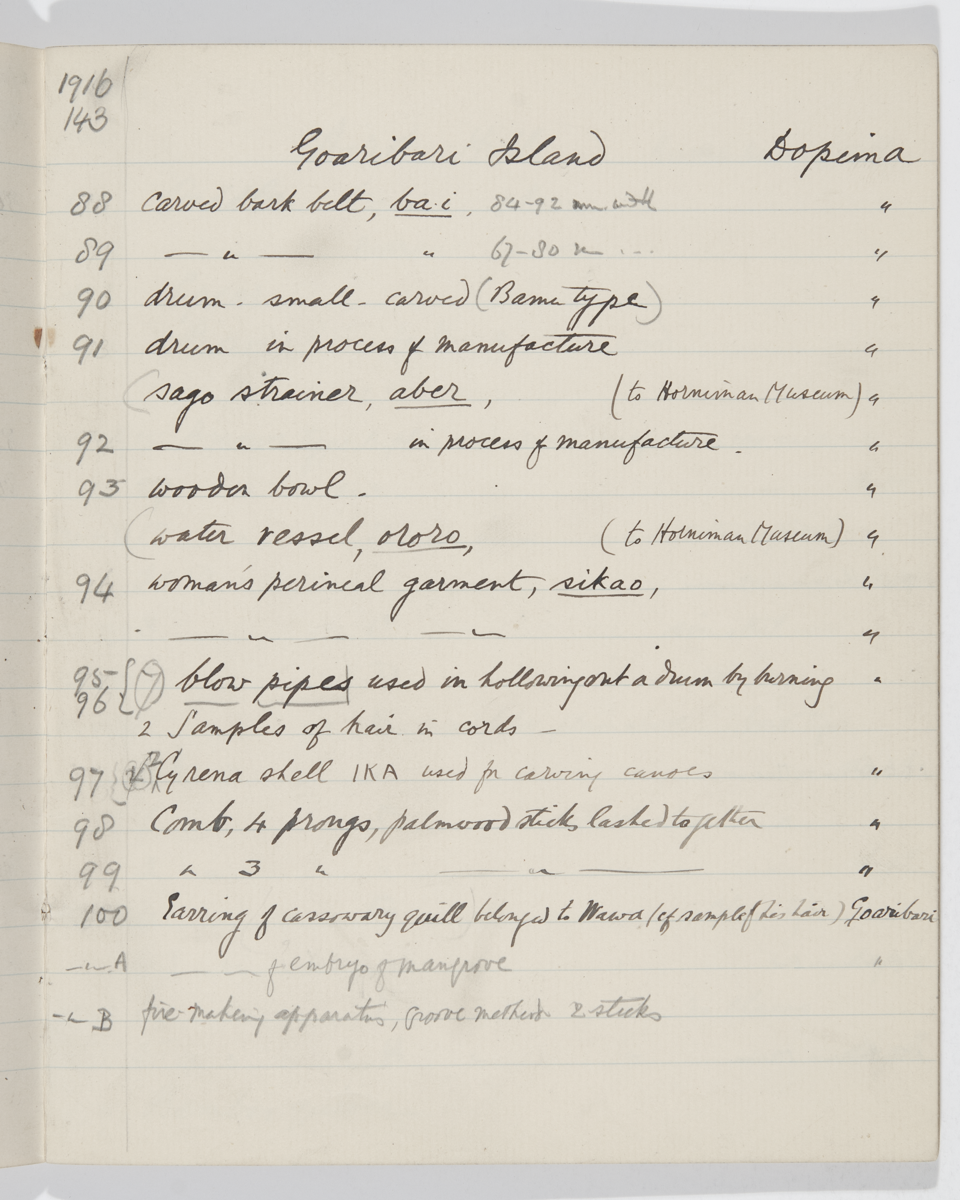 1916
143
Goaribari Island Dopima
88 carved bark belt, ba·i, 84-92 mm width "
89 — " — " 67-80 "
90 drum - small - carved (Bamu type) "
91 drum in process of manufacture "
(sago strainer, aber, (to Horniman Museum) "
92 — " — in process of manufacture. "
93 wooden bowl - "
(water vessel, ororo, (to Horniman Museum) "
94 woman's perineal garment, sikao, "
— " — — " "
95 { blow pipes used in hollowing out a drum by burning "
96 {
2 Samples of hair in cords —
97 Cyrena shell IKA used for carving canoes "
98 Comb, 4 prongs, palmwood sticks lashed together "
99 " 3 " — " — "
100 Earring of cassowary quill belonged to Wawa (cf sample of his hair) Goaribari
— " — A — — of embryo of mangrove "
— " B fire-making apparatus, groove method 2 sticks